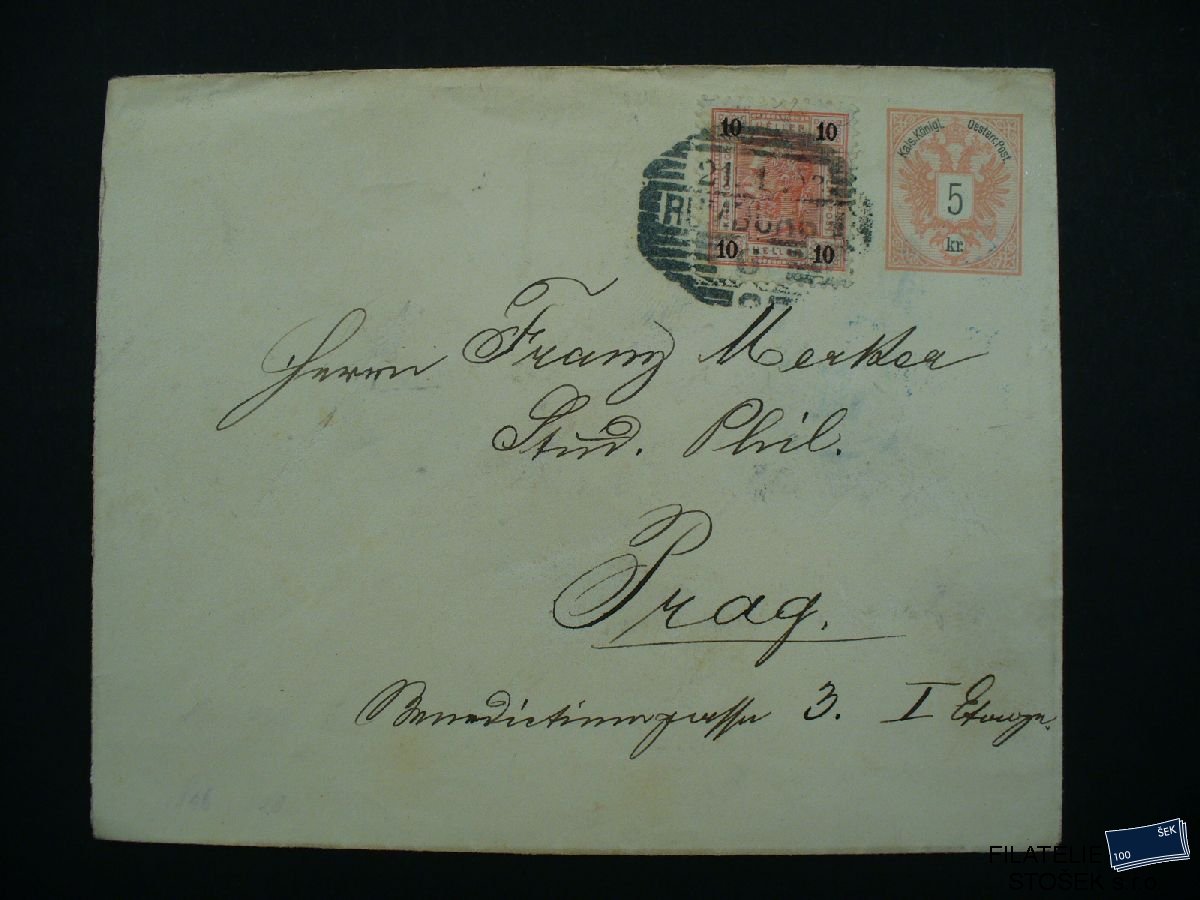 10 HELLER 10
10 HELLER 10
Kais. Königl. Oesterr. Post.
5
kr.
21 1
Herrn Franz Merkter
Stud. Phil.
Prag.
Benedictinergasse 3. I Etage.
100 ŠEK
FILATELIE
STOŠEK s.r.o.